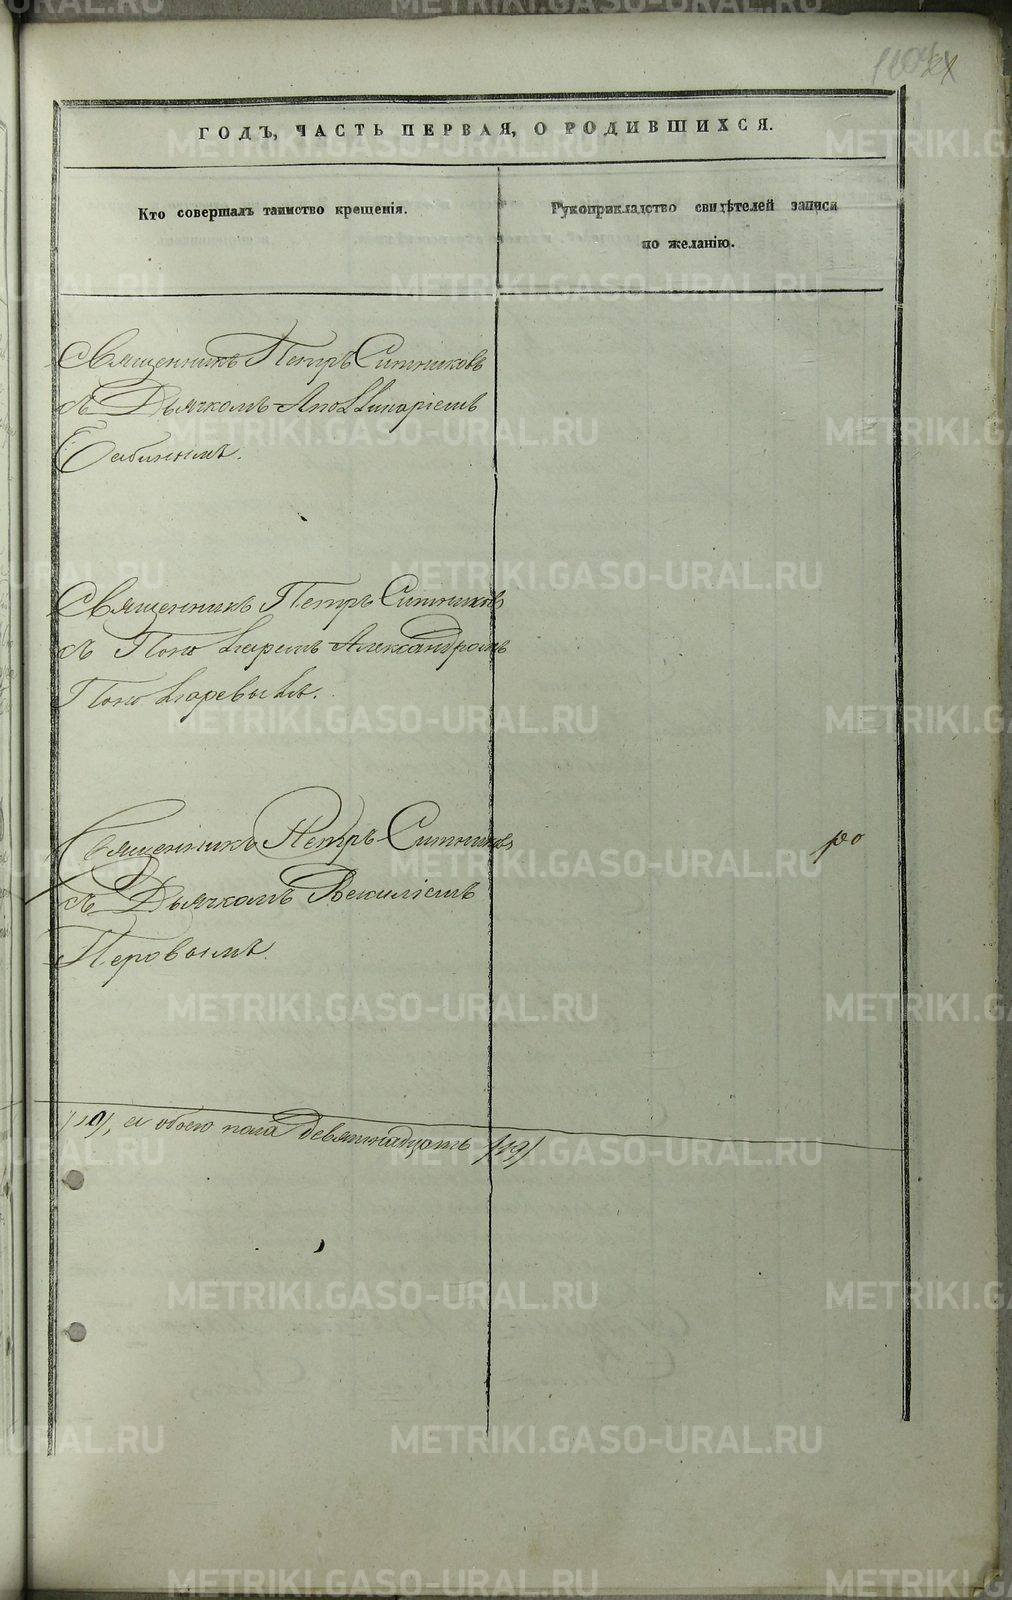 ГОДЪ, ЧАСТЬ ПЕРВАЯ, О РОДИВШИХСЯ.
Кто совершалъ таинство крещенія.
Рукоприкладство свидѣтелей записи
по желанію.
Священникъ Петръ Ситниковъ
съ Дьячкомъ Аполлинаріемъ
Бабинымъ.
Священникъ Петръ Ситниковъ
съ Понамаремъ Александромъ
Священникъ Петръ Ситниковъ
съ Дьячкомъ
Перовымъ.
/10/, а обоего пола девятнадцать /19/
METRIKI.GASO-URAL.RU